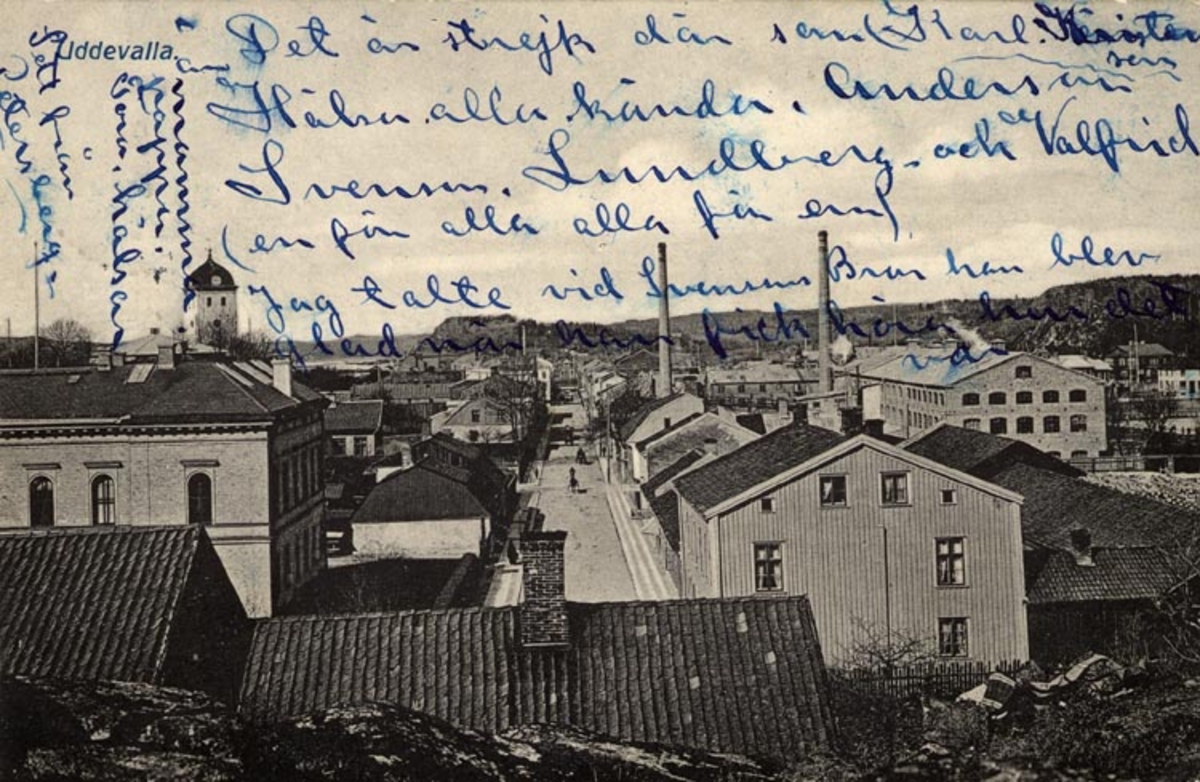 Uddevalla.
Det är strejk där som (Karl. Kristensen
Hälsa alla kända. Anderson
Svenson. Lundberg. och Valfrid
(en för alla alla för en)
Jag talte vid Svensons Bror han blev
glad när han fick höra hur det
var
hälsar
Det från
Petersberg.